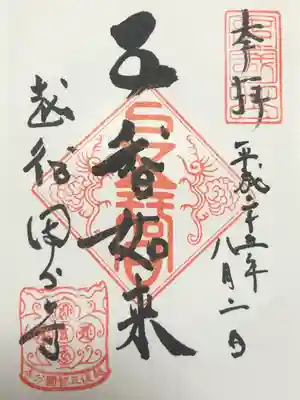 奉拝
平成二十五年
八月二日
五智如来
越後国分寺